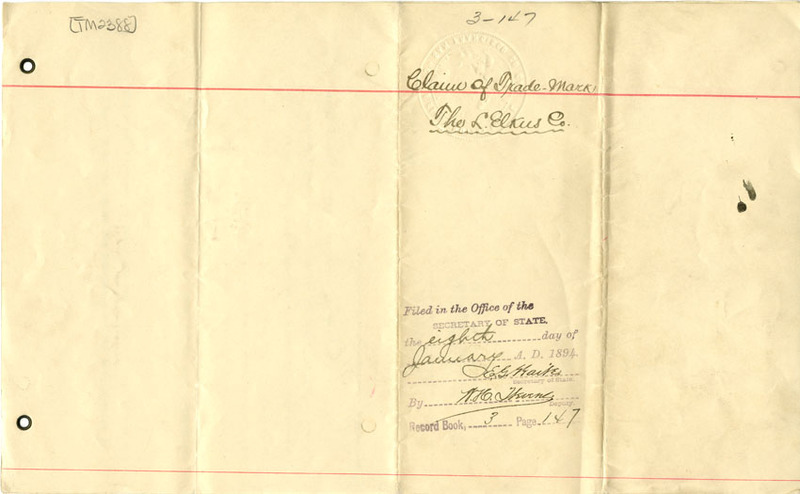 [TM2388]
3-147
Claim of Trade-Mark
The L. Elkus Co.
Filed in the Office of the
SECRETARY OF STATE,
the eighth day of
January A. D. 1894
E.G. Waite
Secretary of State.
By W.H.
Deputy.
Record Book, 3 Page 147